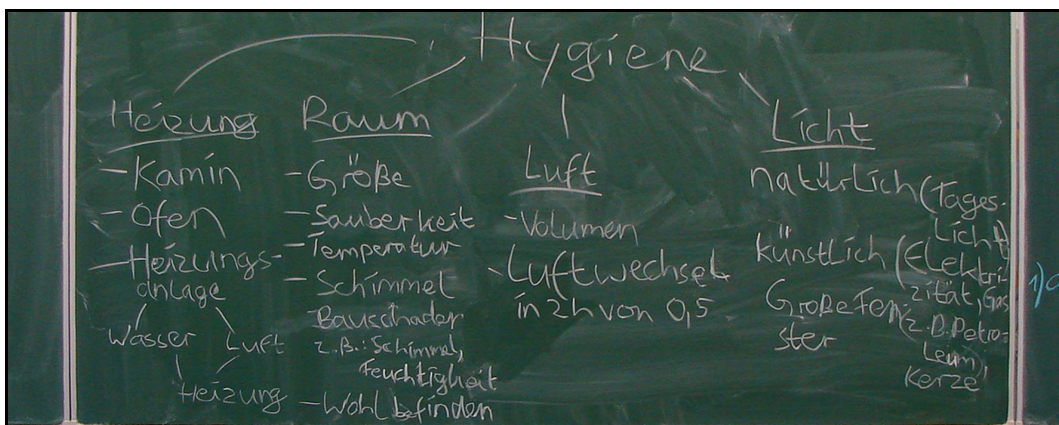 Hygiene
Heizung
- Kamin
- Ofen
- Heizungs-
anlage
Wasser Luft
Heizung
Raum
- Größe
- Sauberkeit
- Temperatur
- Schimmel
Bauschäden
z.B.: Schimmel,
Feuchtigkeit
- Wohlbefinden
Luft
- Volumen
- Luftwechsel
in 2h von 0,5
Licht
natürlich (Tages-
licht)
künstlich (Elektri-
zität, Gas
(z.B. Petro-
leum),
Kerze
Große Fen-
ster
1)